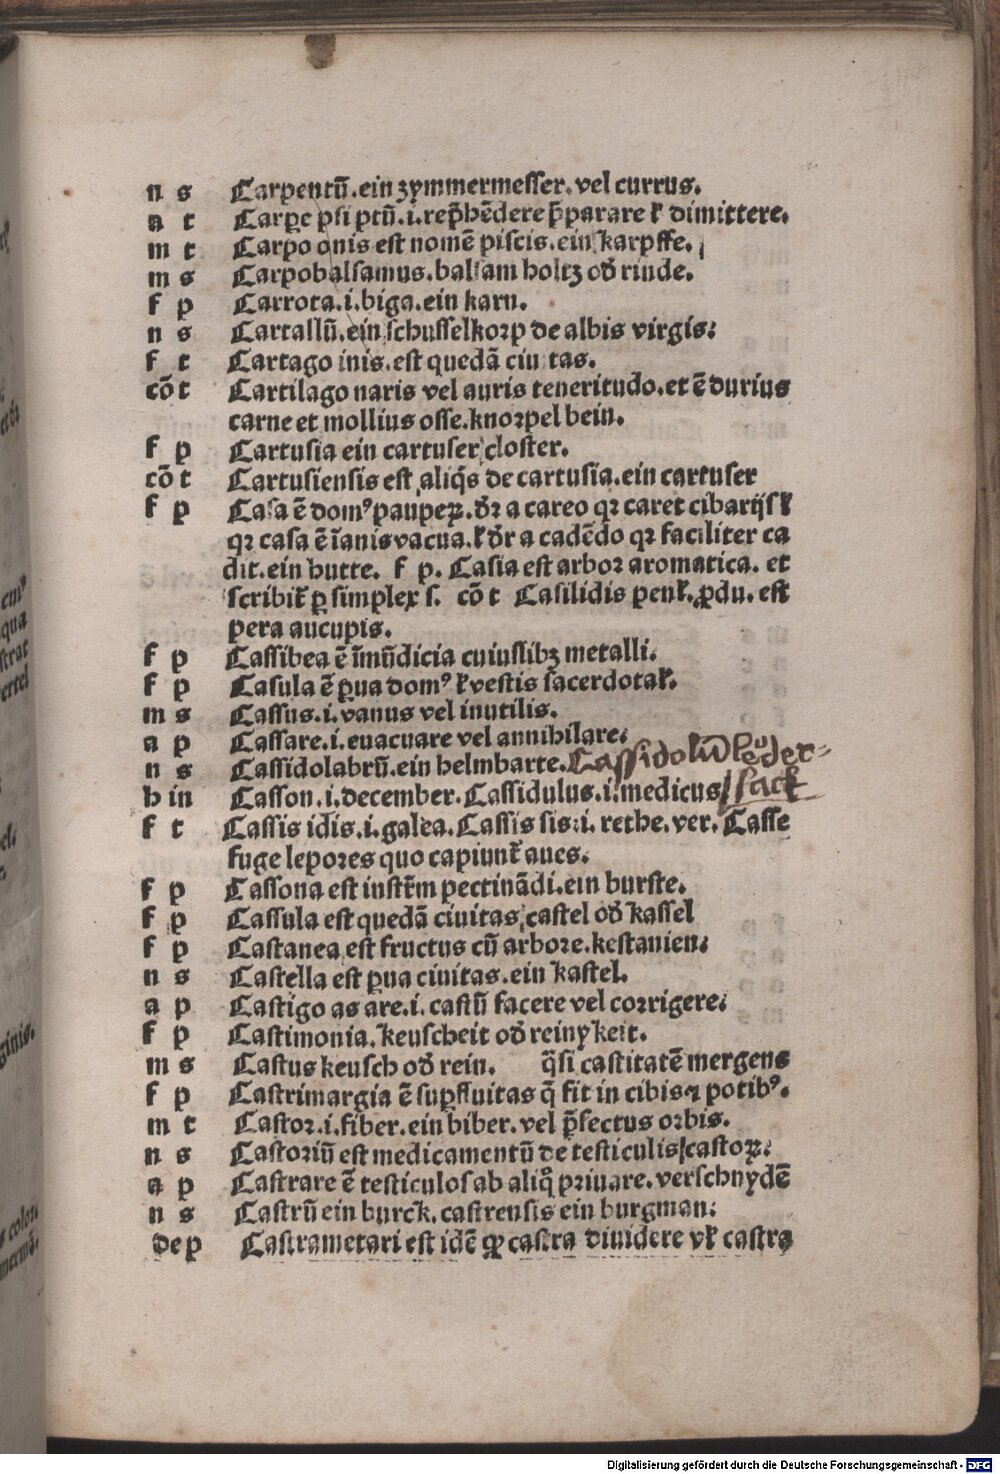 n s Carpentū.ein zymmermesser.vel currus.
a t Carpe psi ptū.i.rep̄hēdere p̄parare ł dimittere.
m t Carpo onis est nomē piscis.ein karpffe.
m s Carpobalsamus.balsam holtz od̄ rinde.
f p Carrota.i.biga.ein karn.
n s Cartallū.ein schusselkorp de albis virgis:
f t Cartago inis.est quedā ciuitas.
cō t Cartilago naris vel auris teneritudo.et ē durius
carne et mollius osse.knorpel bein.
f p Cartusia ein cartuser closter.
cō t Cartusiensis est aliq̄s de cartusia.ein cartuser
f p Casa ē domꝰ pauperꝝ.dr̄ a careo qꝛ caret cibarijs ł
qꝛ casa ē īanis vacua.ł dr̄ a cadēdo qꝛ faciliter ca
dit.ein hutte. f p. Casia est arbor aromatica. et
scribit̄ ꝑ simplex s. cō t Casilidis penlṫ.ꝓdu. est
pera aucupis.
f p Cassibea ē īmūdicia cuiuslibꝫ metalli.
f p Casula ē ꝑua domꝰ ł vestis sacerdotal̄.
m s Cassus.i.vanus vel inutilis.
a p Cassare.i.euacuare vel annihilare:
n s Cassidolabrū.ein helmbarte. Cassidolū leder-
h in Casson.i.december.Cassidulus.i.medicus / sack
f t Cassis idis.i.galea.Cassis sis.i. rethe.ver. Casse
fuge lepores quo capiunt̄ aues.
f p Cassona est instr̄m pectinādi.ein burste.
f p Cassula est quedā ciuitas.castel od̄ kassel
f p Castanea est fructus cū arbore.kestanien:
n s Castella est ꝑua ciuitas.ein kastel.
a p Castigo as are.i. castū facere vel corrigere:
f p Castimonia.keuscheit od̄ reinykeit.
m s Castus keusch od̄ rein. q̄si castitatē mergens
f p Castrimargia ē suꝑfluitas q̄ fit in cibis ⁊ potibꝰ.
m t Castor.i.fiber.ein biber.vel p̄fectus orbis.
n s Castoriū est medicamentū de testiculis castoꝝ:
a p Castrare ē testiculos ab aliq̊ priuare.verschnydē
n s Castrū ein burck.castrensis ein burgman:
dep Castrametari est idē qꝫ castra diuidere vł castra
Digitalisierung gefördert durch die Deutsche Forschungsgemeinschaft - DFG